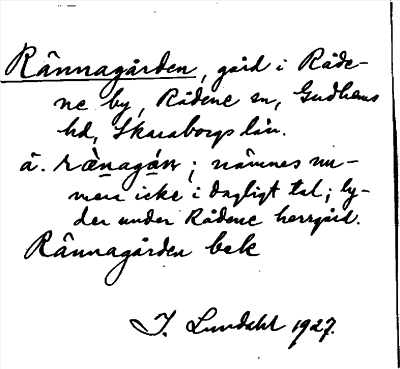 Rännagården, gård i Råde-
ne by, Rådene sn, Gudhems
hd, Skaraborgs län.
å. rænagán; nämnes nu-
mera icke i dagligt tal; ly-
der under Rådene herrgård.
Rännagården bek
I. Lundahl 1927.